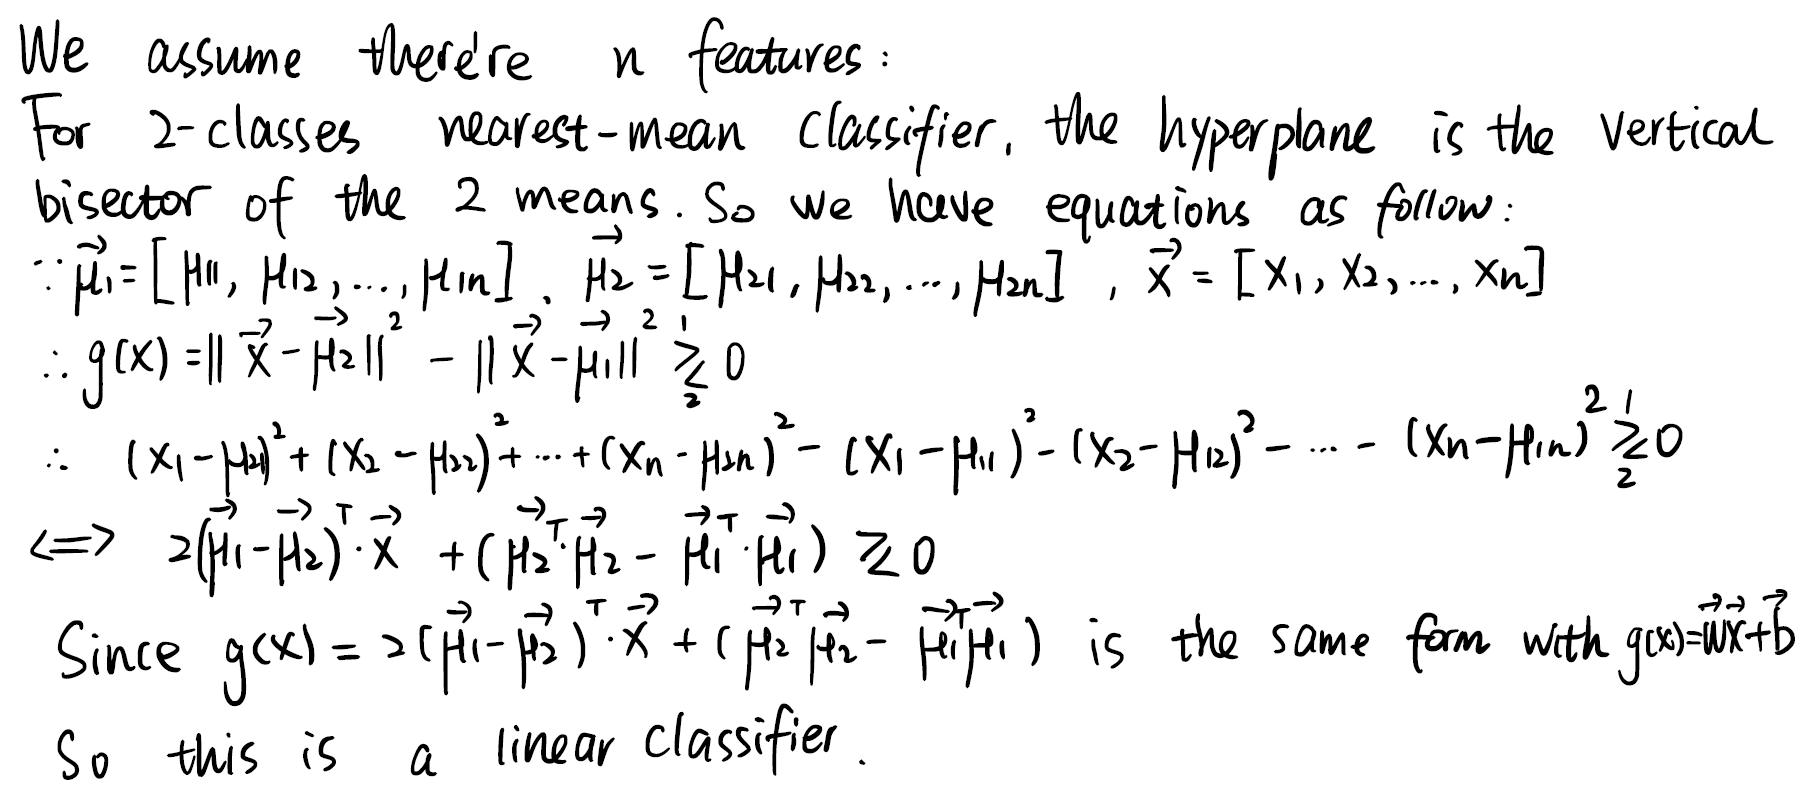 We assume there're n features:
For 2-classes nearest-mean classifier, the hyperplane is the vertical
bisector of the 2 means. So we have equations as follow:
∵ μ⃗₁ = [μ₁₁, μ₁₂, ..., μ₁ₙ], μ⃗₂ = [μ₂₁, μ₂₂, ..., μ₂ₙ], x⃗ = [x₁, x₂, ..., xₙ]
∴ g(x) = ||x⃗ - μ⃗₂||² - ||x⃗ - μ⃗₁||² ≷¹₂ 0
∴ (x₁ - μ₂₁)² + (x₂ - μ₂₂)² + ... + (xₙ - μ₂ₙ)² - (x₁ - μ₁₁)² - (x₂ - μ₁₂)² - ... - (xₙ - μ₁ₙ)² ≷¹₂ 0
⟺ 2(μ⃗₁ - μ⃗₂)ᵀ · x⃗ + (μ⃗₂ᵀ · μ⃗₂ - μ⃗₁ᵀ · μ⃗₁) ≷ 0
Since g(x) = 2(μ⃗₁ - μ⃗₂)ᵀ · x⃗ + (μ⃗₂ᵀ μ⃗₂ - μ⃗₁ᵀ μ⃗₁) is the same form with g(x) = w⃗x⃗ + b⃗
So this is a linear classifier.